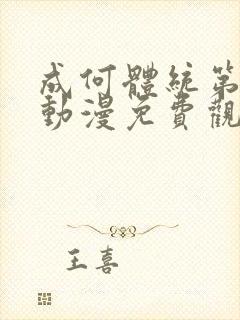 成何體統第
動漫免費觀
王喜